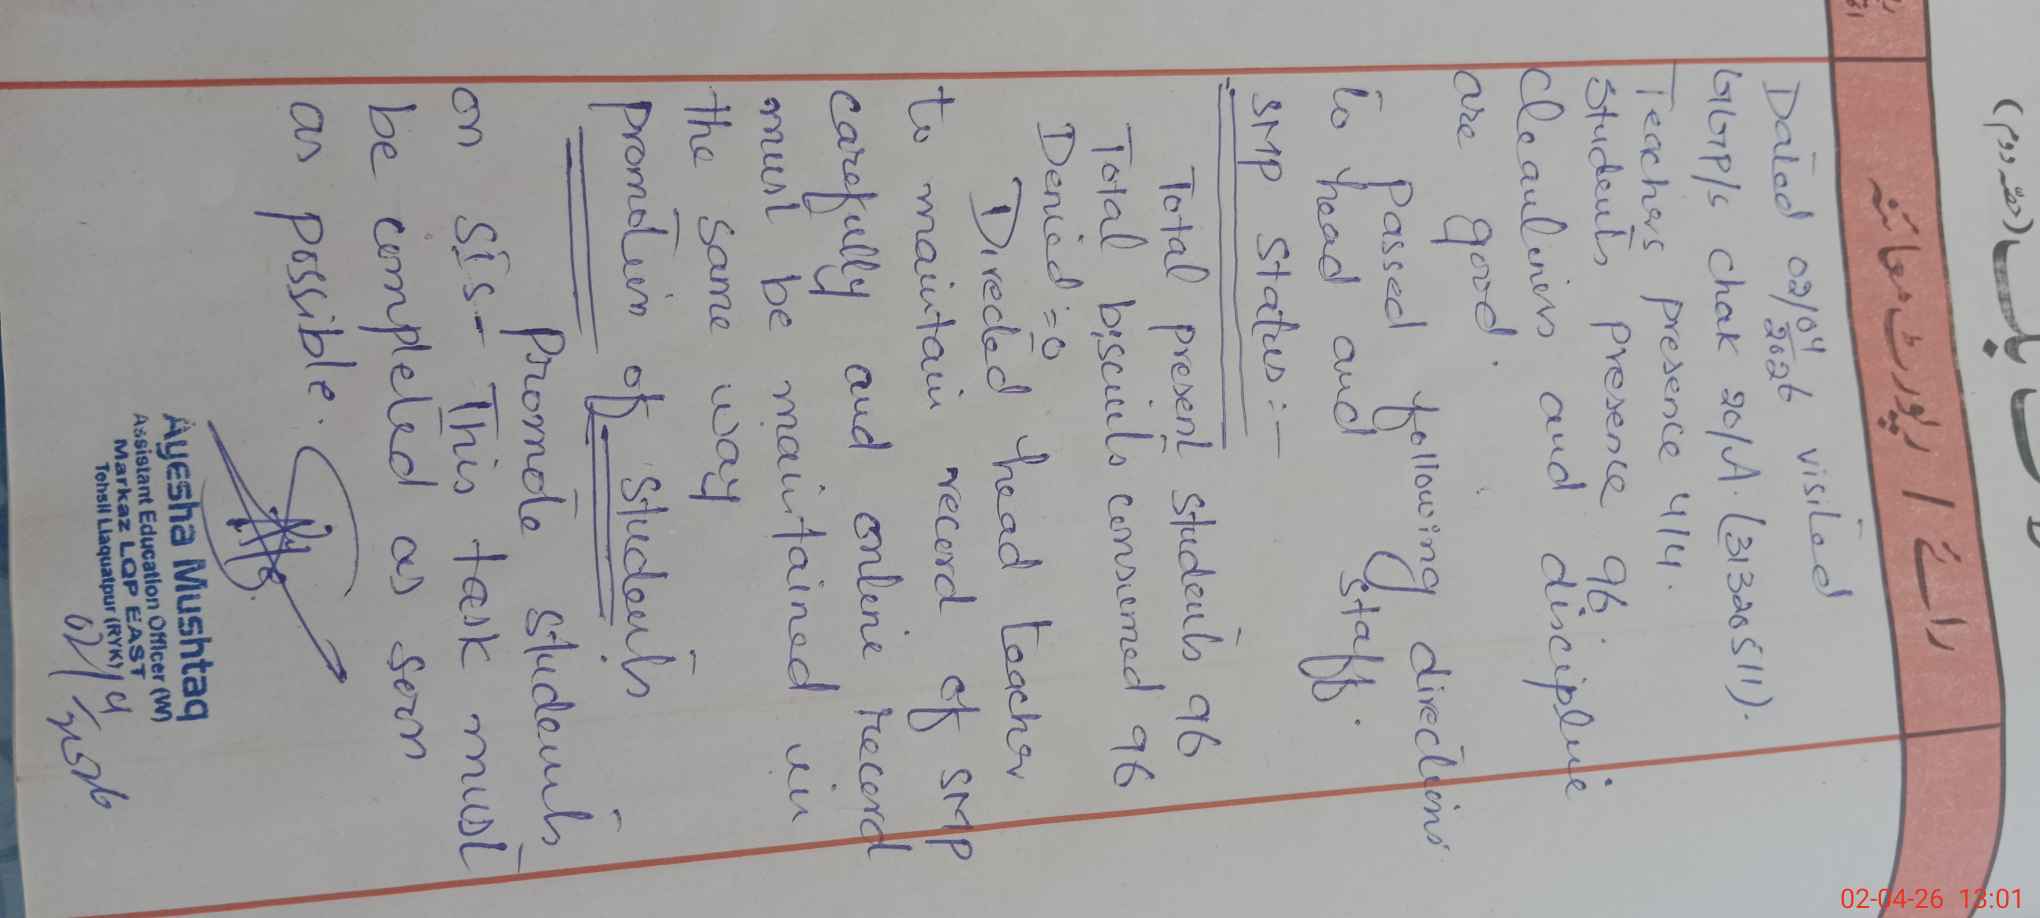 (حصہ دوم)
رائے / رپورٹ معائنہ
Dated 02/04/2026 visited
GGP/s chak 20/A. (31320511).
Teachers presence 4/4.
Students presence 96
cleanliness and discipline
are good.
Passed following directions
to head and staff.
SMP Status:-
Total present students 96
Total biscuits consumed 96
Denied := 0
Directed head teacher
to maintain record of SMP
carefully and online record
must be maintained in
the same way
Promotion of students
Promote students
on SIS- This task must
be completed as soon
as possible.
Ayesha Mushtaq
Assistant Education Officer (W)
Markaz LQP EAST
Tehsil Liaquatpur (RYK)
02/4/2026
02-04-26 13:01